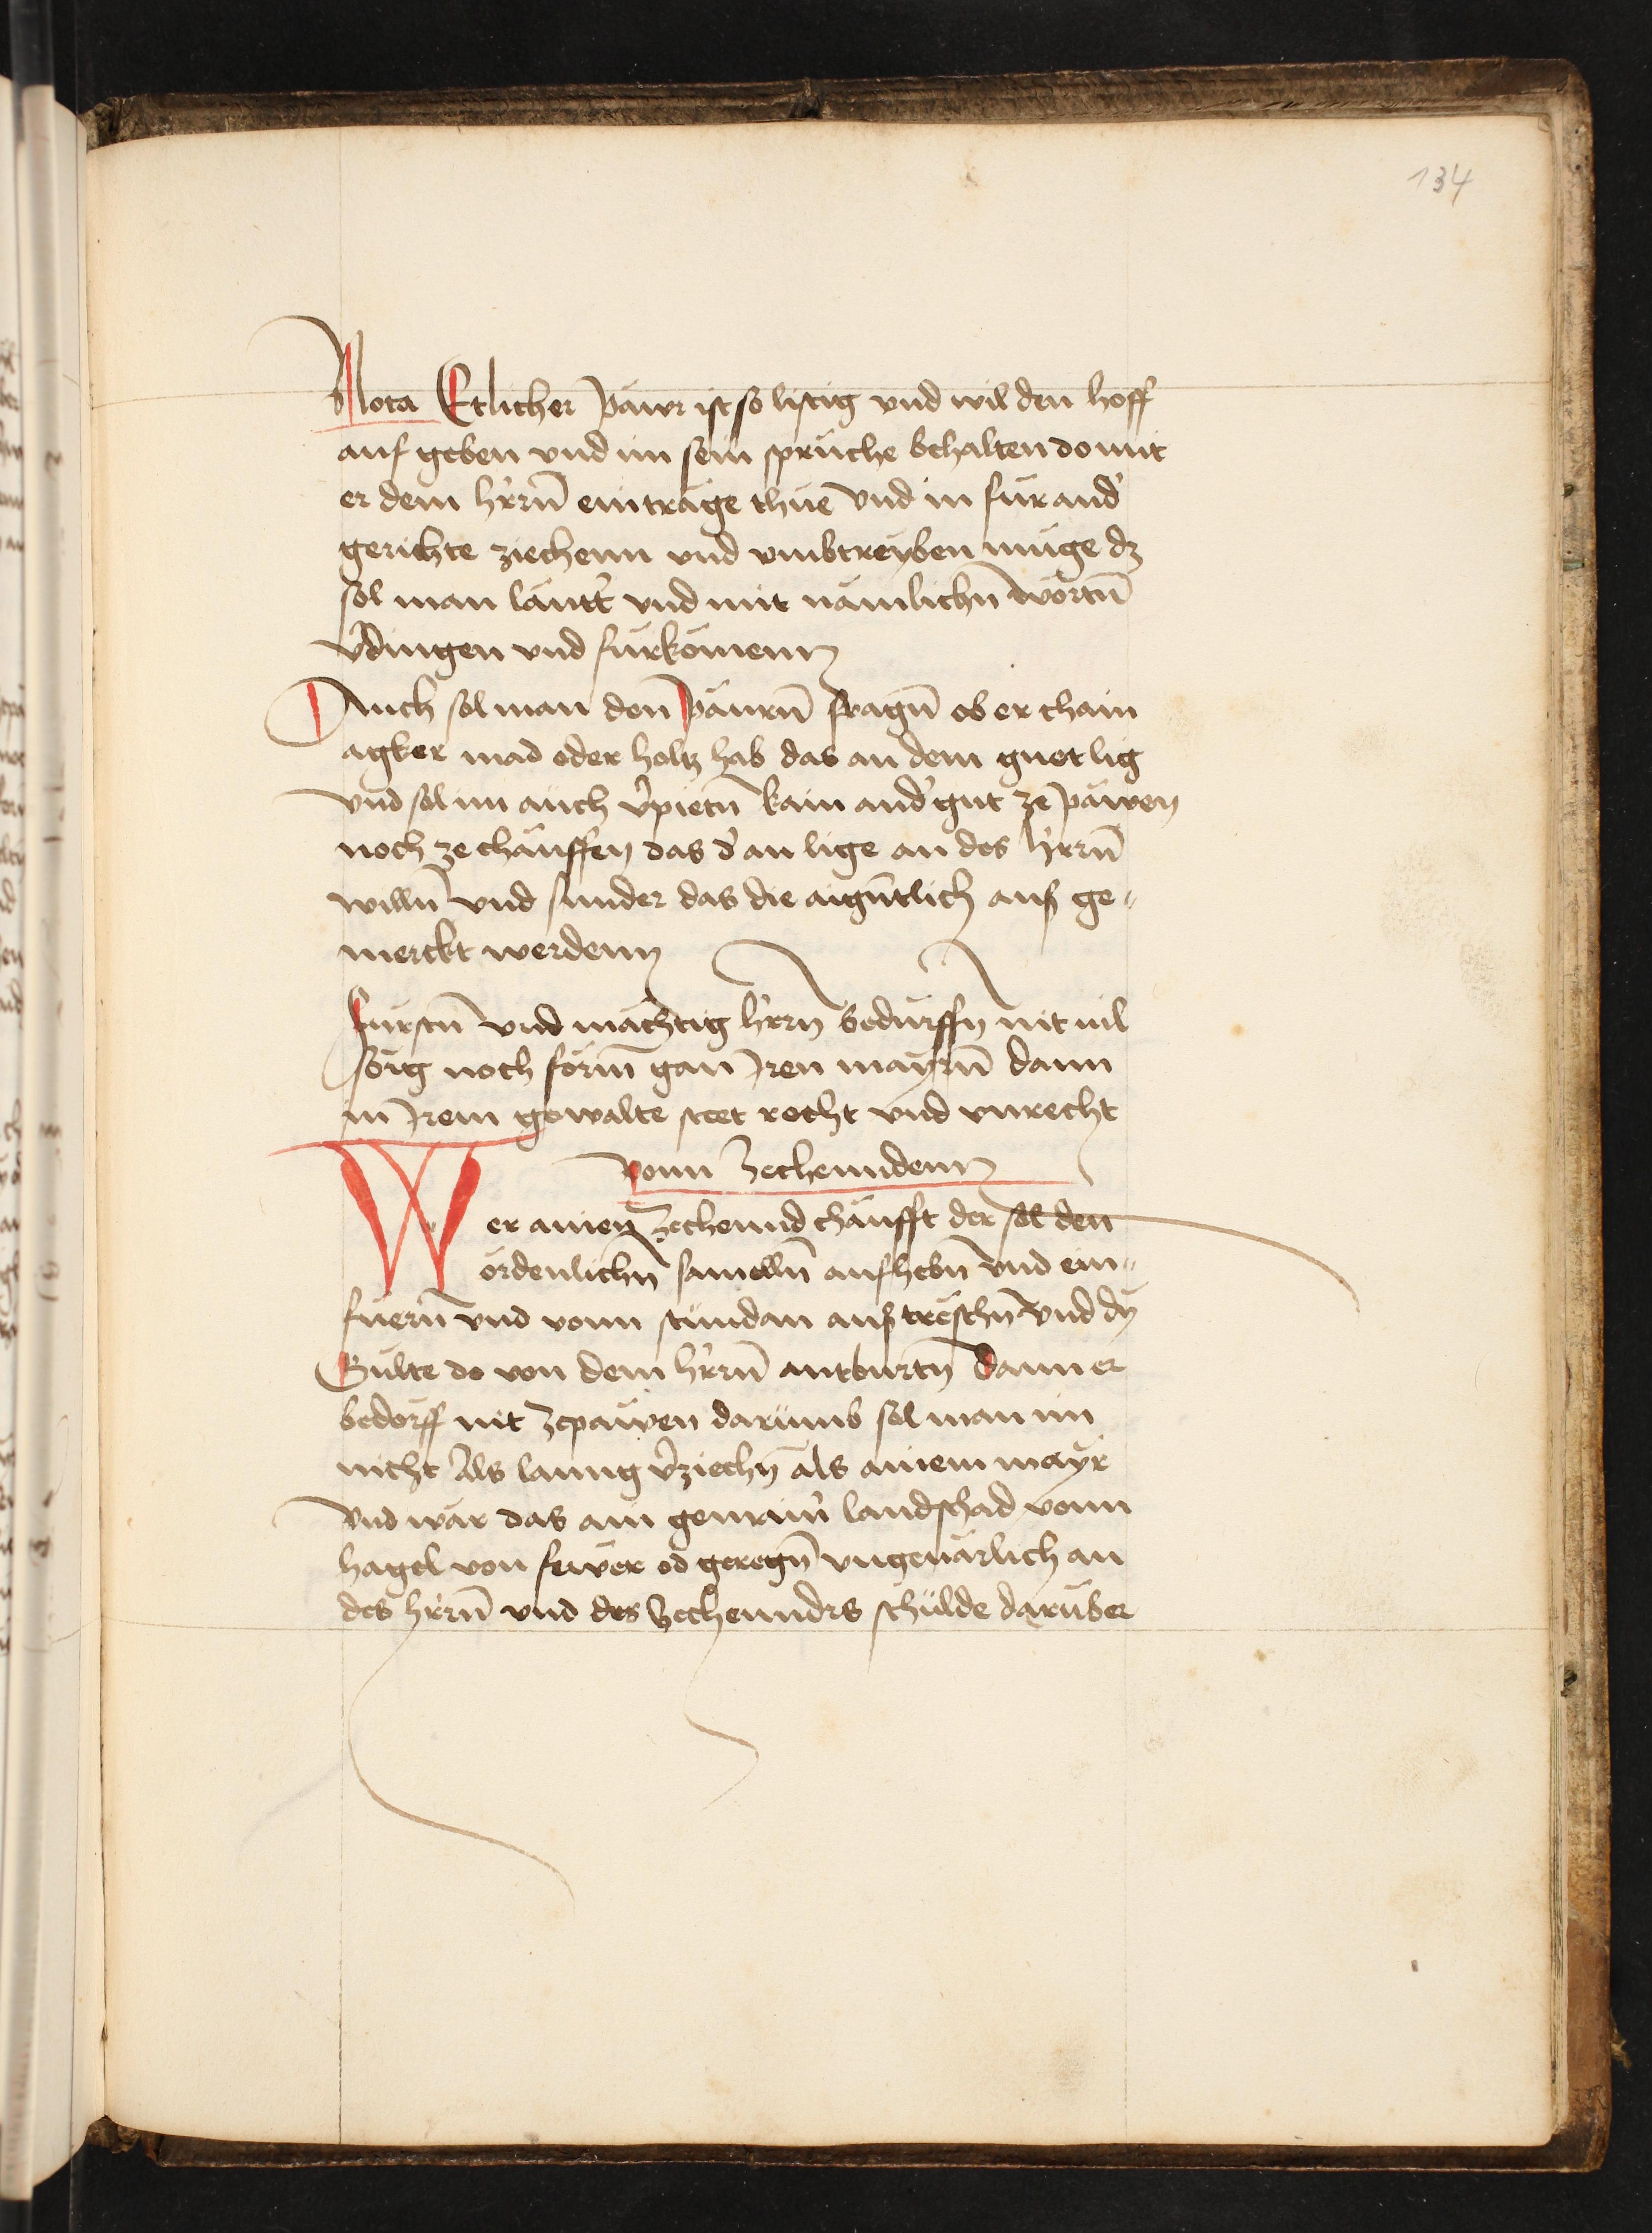 134
Nota Etlicher päwr ist so listig vnd wil den hoff
auf geben vnd im sein sprüche behalten do mit
er dem h'rrn̄ einträge thue vnd in für and'
gerichte ziechenn vnd vmbtreyben müge dz
sol man lautt' vnd mit nämlichn̄ wörtn̄
v'dingen vnd fürkömenn
Auch sol man den päurn̄ fragn̄ ob er chain
agker mad oder holtz hab das an dem guet lig
vnd sol im auch v'pietn̄ kain and' gut ze päwen
noch ze chäuffen das d'an lige an des h'rrn̄
willn̄ vnd sunder das die aign̄tlich auf ge-
merckt werdenn
Fürstn̄ vnd mächtig h'rrn bedürffn̄ nit vil
sorg noch förm̄ gan jren mayrn̄ dann
in jrem gewalte steet recht vnd vnrecht
Vonn Zechenndenn
Wer ainen zechennd chäufft der sol den
ördenlichn̄ samelln̄ aufhebn̄ vnd ein-
füern̄ vnd vonn stündan auß treschn̄ vnd dy
Gülte do von dem h'rrn̄ antburtn̄ dann er
bedörff nit zepäwen darumb sol man im
nicht als lanng v'ziechn̄ als ainem mayr
Vnd wär das ain gemain' landschad vonn
hagel von fewer od geregn̄ vngeuärlich an
des h'rrn̄ vnd des Zechenndrs schülde darüber